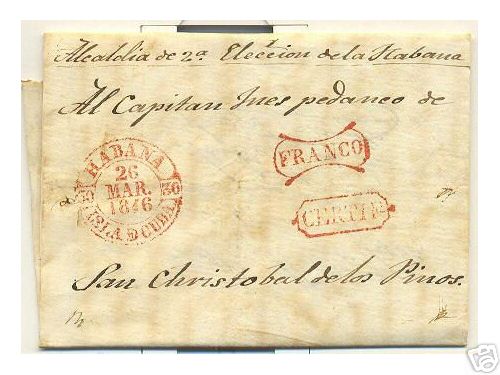 Alcaldia de 2ª Eleccion de la Habana
Al Capitan Jues pedaneo de
HABANA
26
MAR.
1846
30
30
ISLA D CUBA
FRANCO
San Christobal de los Pinos.